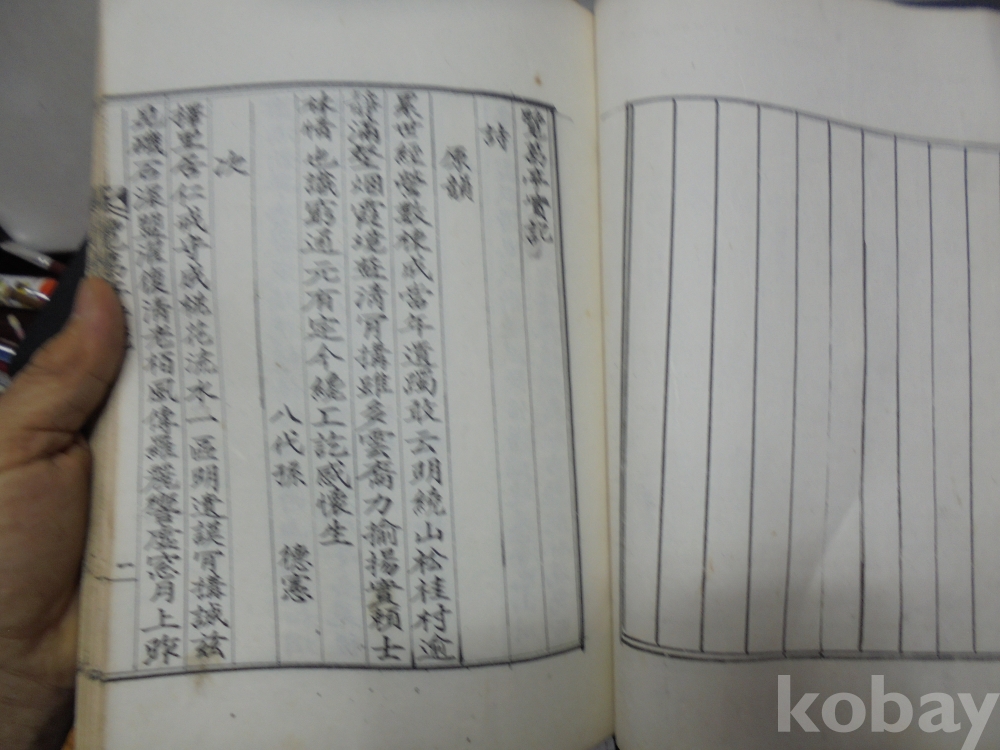 覽萬亭實記
詩
原韻
累世經營數棟成當年遺躅敢云明繞山松桂村逾
靜滿壑烟霞境益清肯搆雖多雲裔力揄揚實賴士
林情也識窮通元有定今纔工訖感懷生
八代孫 德憲
次
擇里吾仁成守成桃花流水一區明遺謨肯搆誠玆
見磯吾深濯復清老栢風傳羅麗響虛窓月上
一
kobay